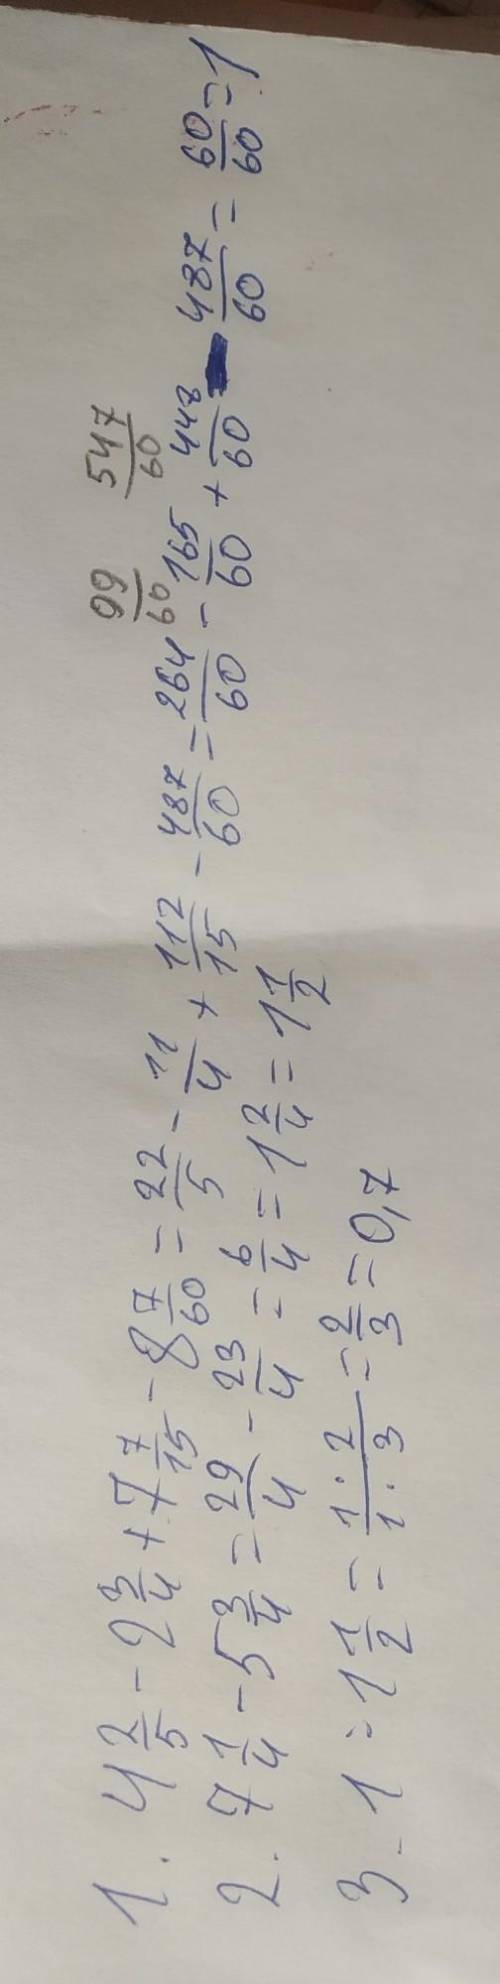 99/60 547/60
1. 4 2/5 - 2 3/4 + 7 7/15 - 8 7/60 = 22/5 - 11/4 + 112/15 - 487/60 = 264/60 - 165/60 + 448/60 - 487/60 = 60/60 = 1
2. 7 1/4 - 5 3/4 = 29/4 - 23/4 = 6/4 = 1 2/4 = 1 1/2
3. 1 : 1 1/2 = 1·2/1·3 = 2/3 = 0,7